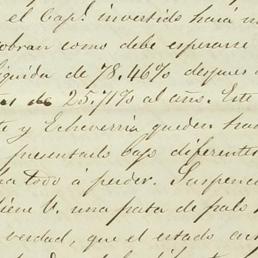 el Cap.l invertido hará
obran como debe esperarse
líquida de 78.46% despues
de 25.71% al año. Este
y Echeverria queden
presentado bajo diferentes
todo á perder.
tiene V. una pata de palo
verdad, que el estado